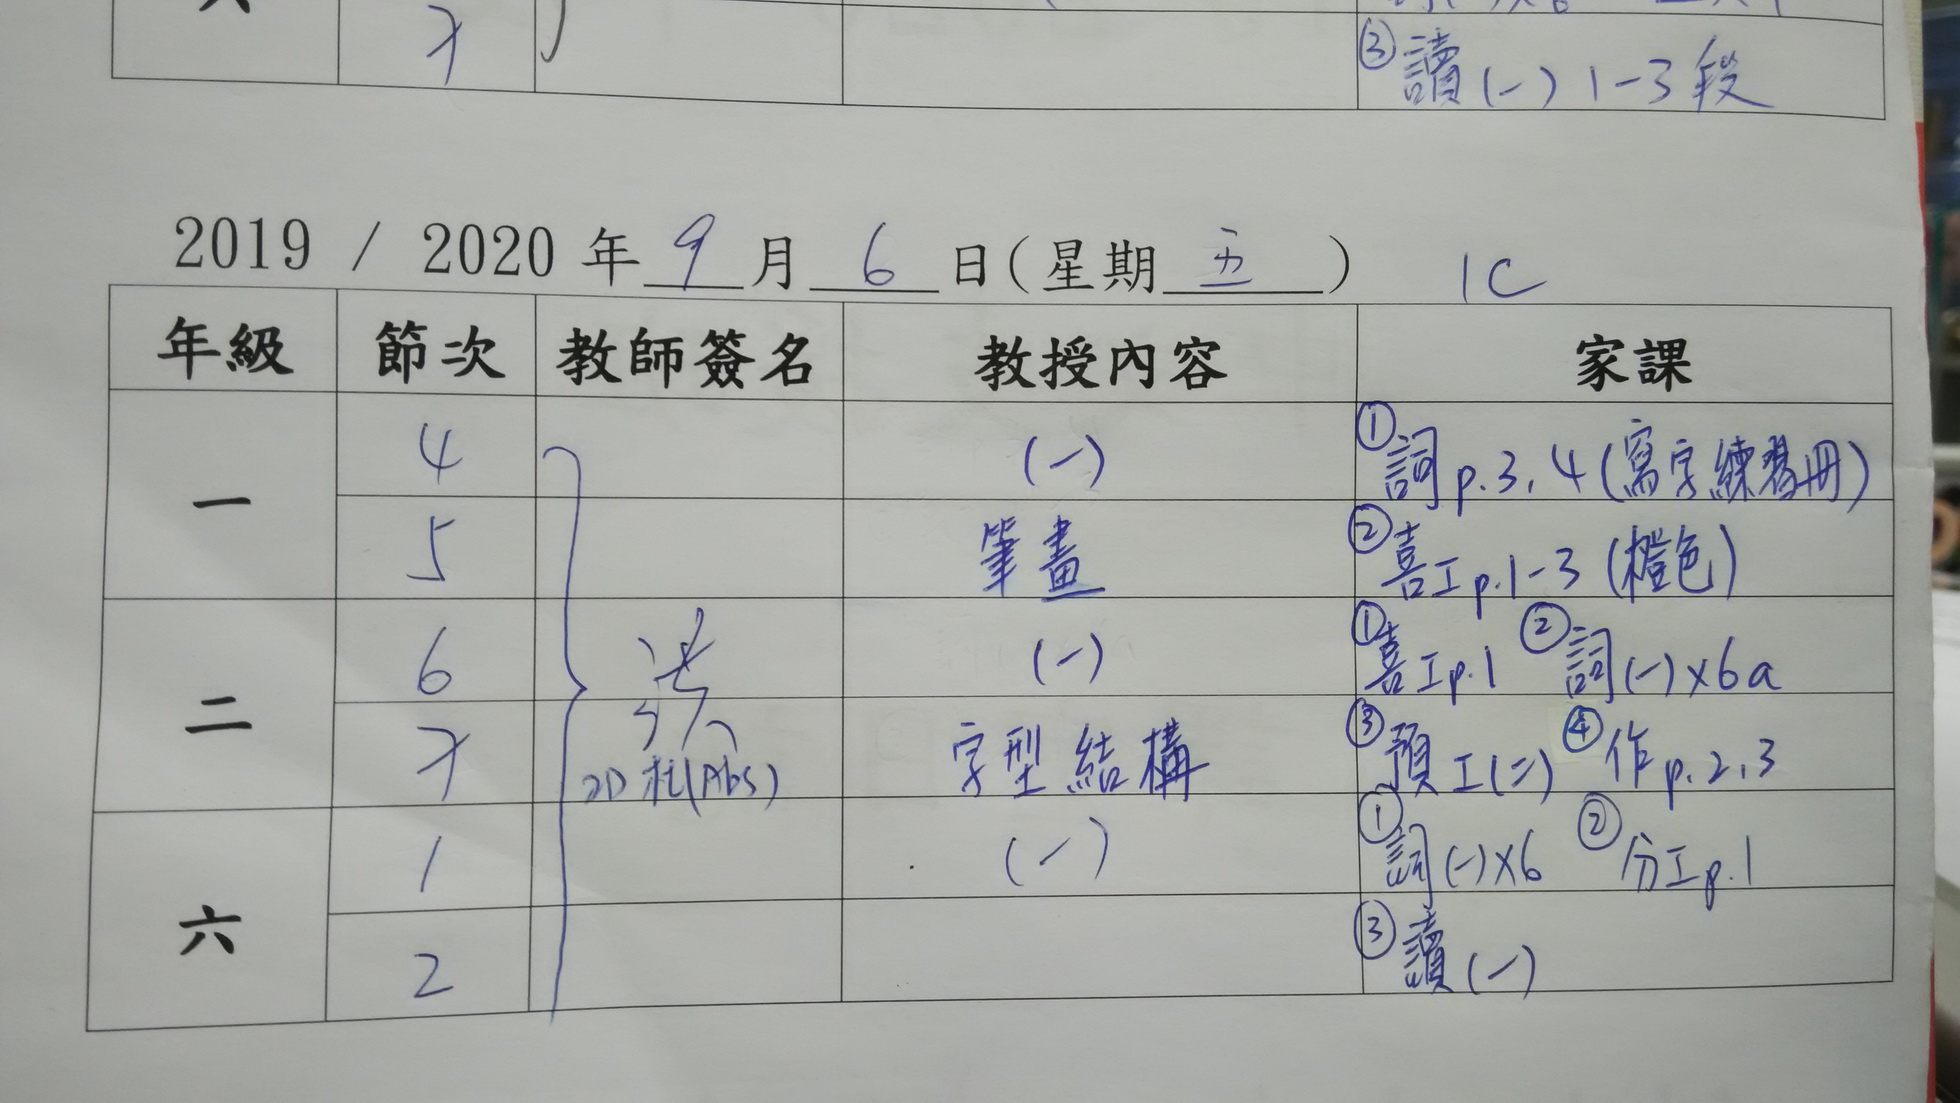 7
③讀(一) 1-3段
2019 / 2020 年 9 月 6 日(星期 五 ) 1C
年級 節次 教師簽名 教授內容 家課
一 4 (一) ①詞p.3,4(寫字練習冊)
5 筆畫 ②喜工p.1-3(橙色)
二 6 (一) ①喜工p.1 ②詞(一)x6a
7 字型結構 ③預工(二) ④作p.2,3
六 1 (一) ①詞(一)x6 ②分工p.1
2 ③讀(一)